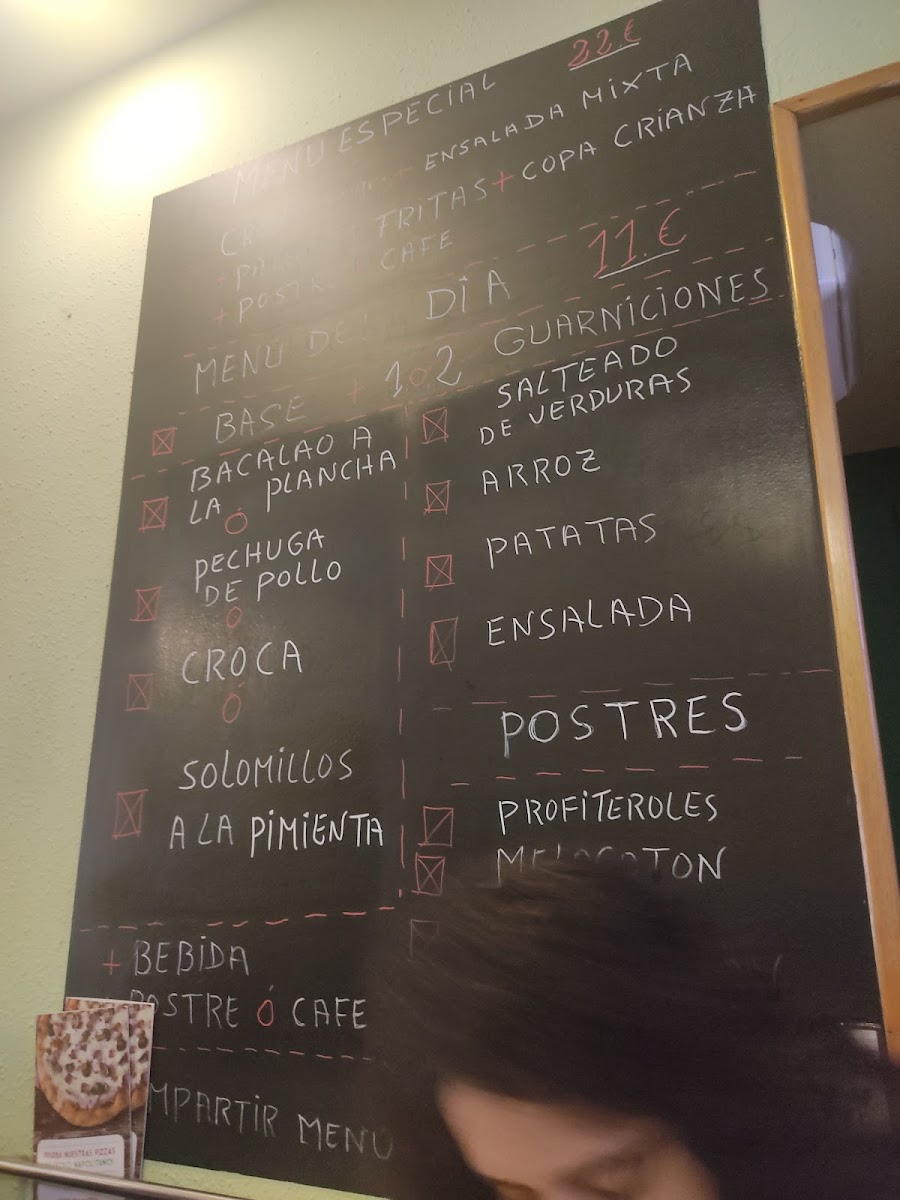 MENU ESPECIAL 22.€
+ ENSALADA MIXTA
+ FRITAS + COPA CRIANZA
+ POSTRE CAFE
MENÚ DE DÍA 11.€
BASE + 1 o 2 GUARNICIONES
BACALAO A
LA PLANCHA
Ó
PECHUGA
DE POLLO
Ó
CROCA
Ó
SOLOMILLOS
A LA PIMIENTA
SALTEADO
DE VERDURAS
ARROZ
PATATAS
ENSALADA
POSTRES
PROFITEROLES
+ BEBIDA
POSTRE Ó CAFE
MENÚ
PRUEBA NUESTRAS PIZZAS